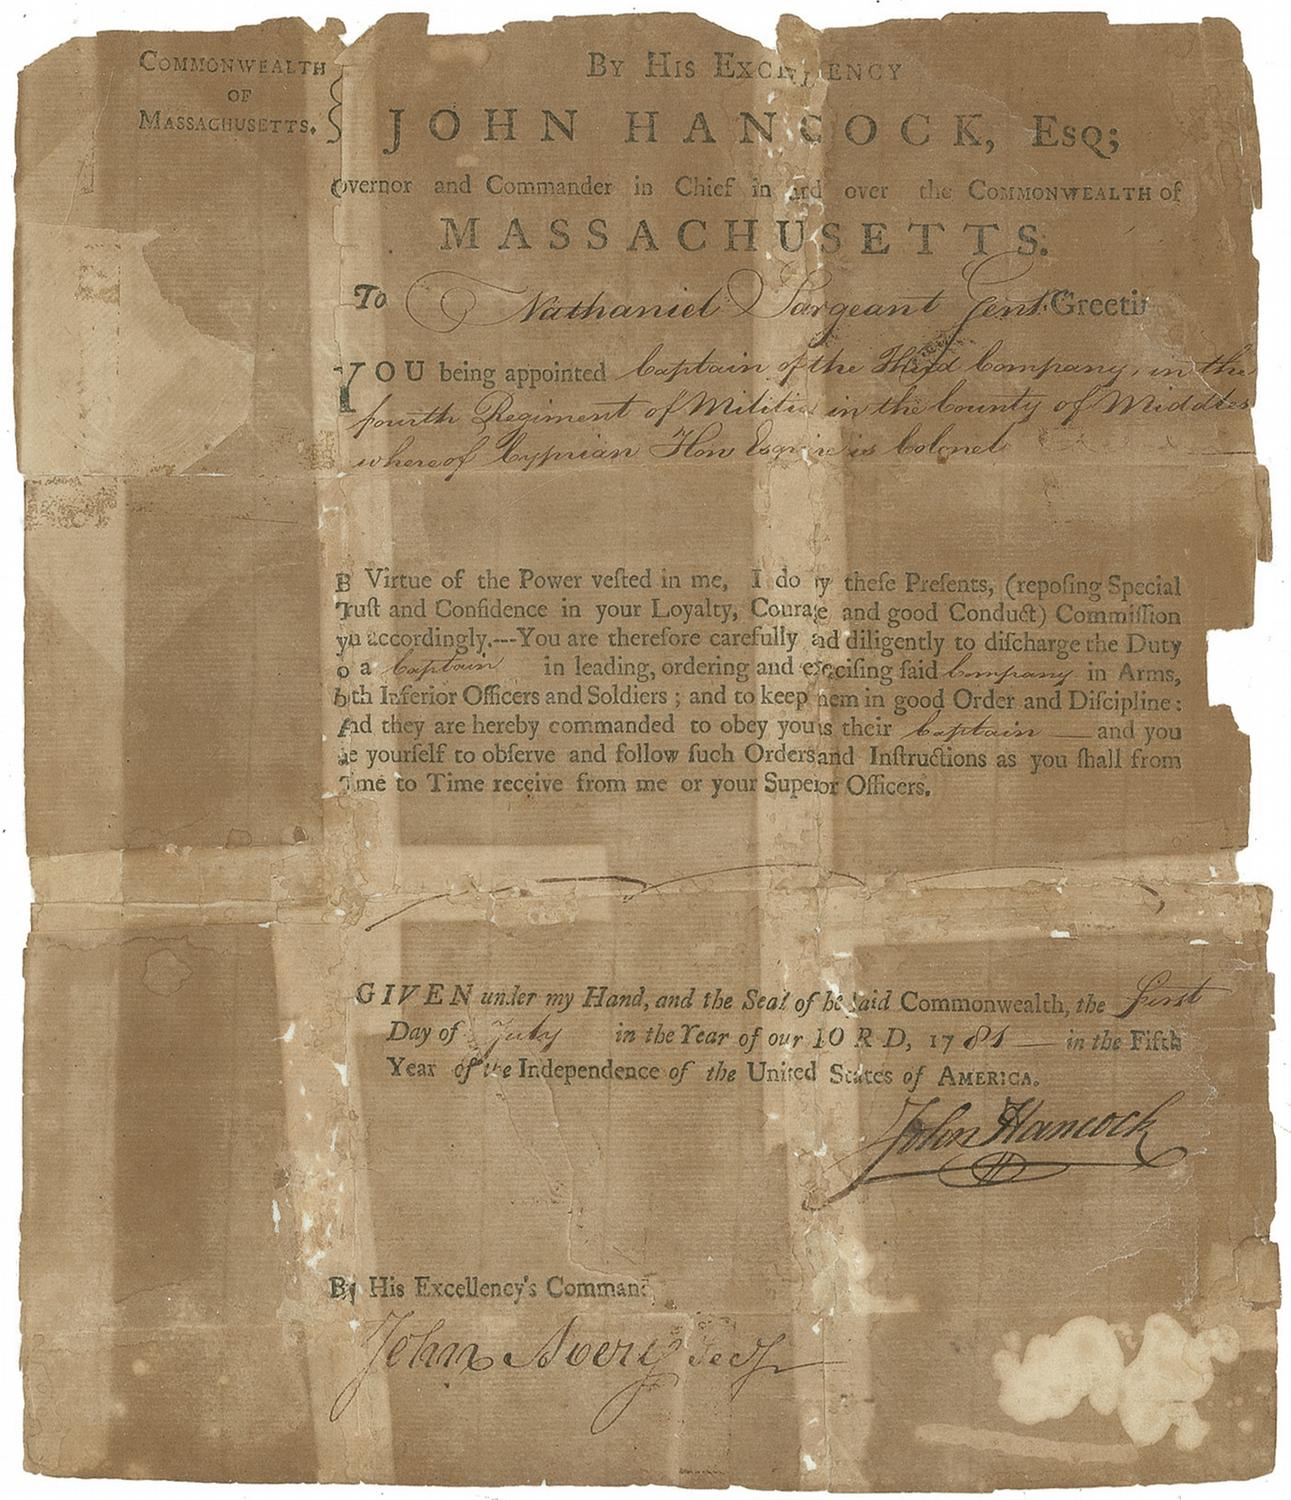 COMMONWEALTH
OF
MASSACHUSETTS.
BY HIS EXCELLENCY
JOHN HANCOCK, ESQ;
overnor and Commander in Chief in and over the COMMONWEALTH of
MASSACHUSETTS.
To Nathaniel Sargeant Gent. Greeti
YOU being appointed Captain of the Third Company, in the
fourth Regiment of Militia in the County of Middles
whereof Cyprian How Esquire is Colonel
B Virtue of the Power veſted in me, I do y theſe Preſents, (repoſing Special
Truſt and Confidence in your Loyalty, Courage and good Conduct) Commiſſion
yu accordingly.---You are therefore carefully ad diligently to diſcharge the Duty
o a Captain in leading, ordering and exerciſing ſaid Company in Arms,
bth Inferior Officers and Soldiers ; and to keep hem in good Order and Diſcipline :
And they are hereby commanded to obey you as their Captain — and you
e yourſelf to obſerve and follow ſuch Orders and Inſtructions as you ſhall from
Time to Time receive from me or your Superior Officers.
GIVEN under my Hand, and the Seal of he ſaid Commonwealth, the first
Day of July in the Year of our LORD, 1781 — in the Fifth
Year of the Independence of the United States of AMERICA.
John Hancock
By His Excellency's Command
John Avery Secy